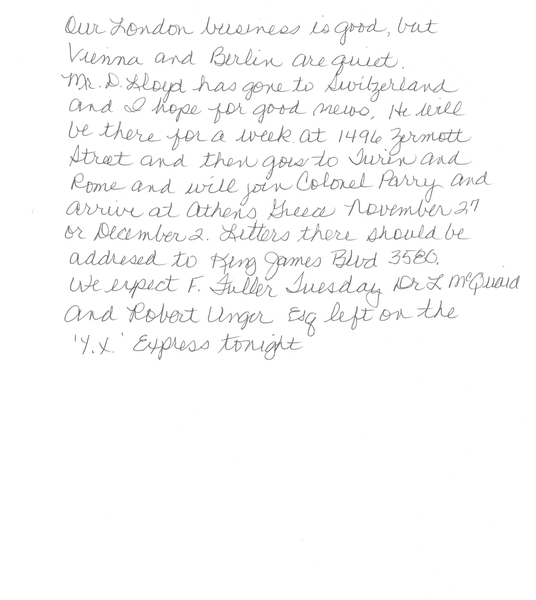 Our London business is good, but
Vienna and Berlin are quiet.
Mr. D. Lloyd has gone to Switzerland
and I hope for good news. He will
be there for a week at 1496 Zermott
Street and then goes to Turin and
Rome and will join Colonel Parry and
arrive at Athens Greece November 27
or December 2. Letters there should be
addresed to King James Blvd 3580.
We expect F. Fuller Tuesday Dr L McQuaid
and Robert Unger Esq left on the
'Y.X.' Express tonight